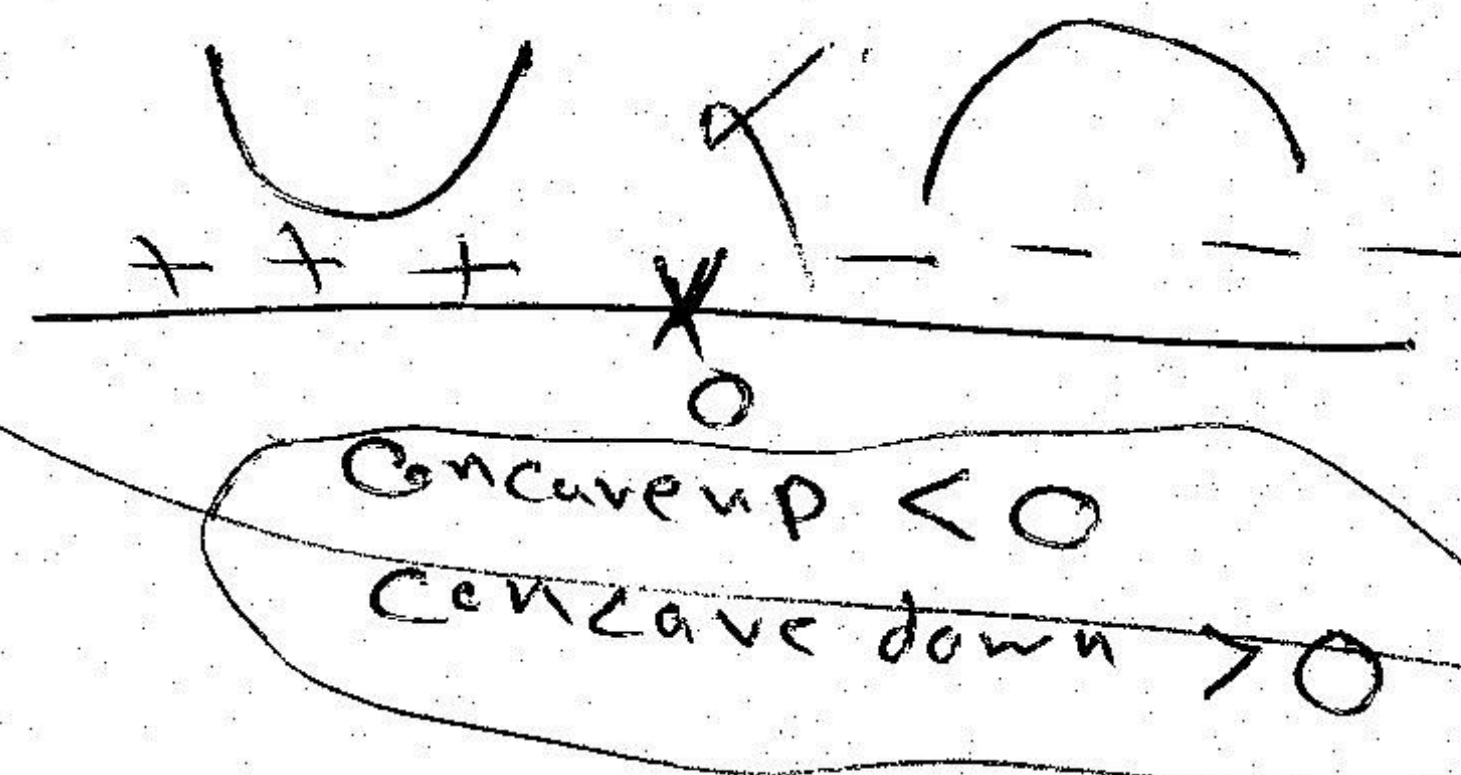 + + + - - - -
0
Concave up < 0
Concave down > 0